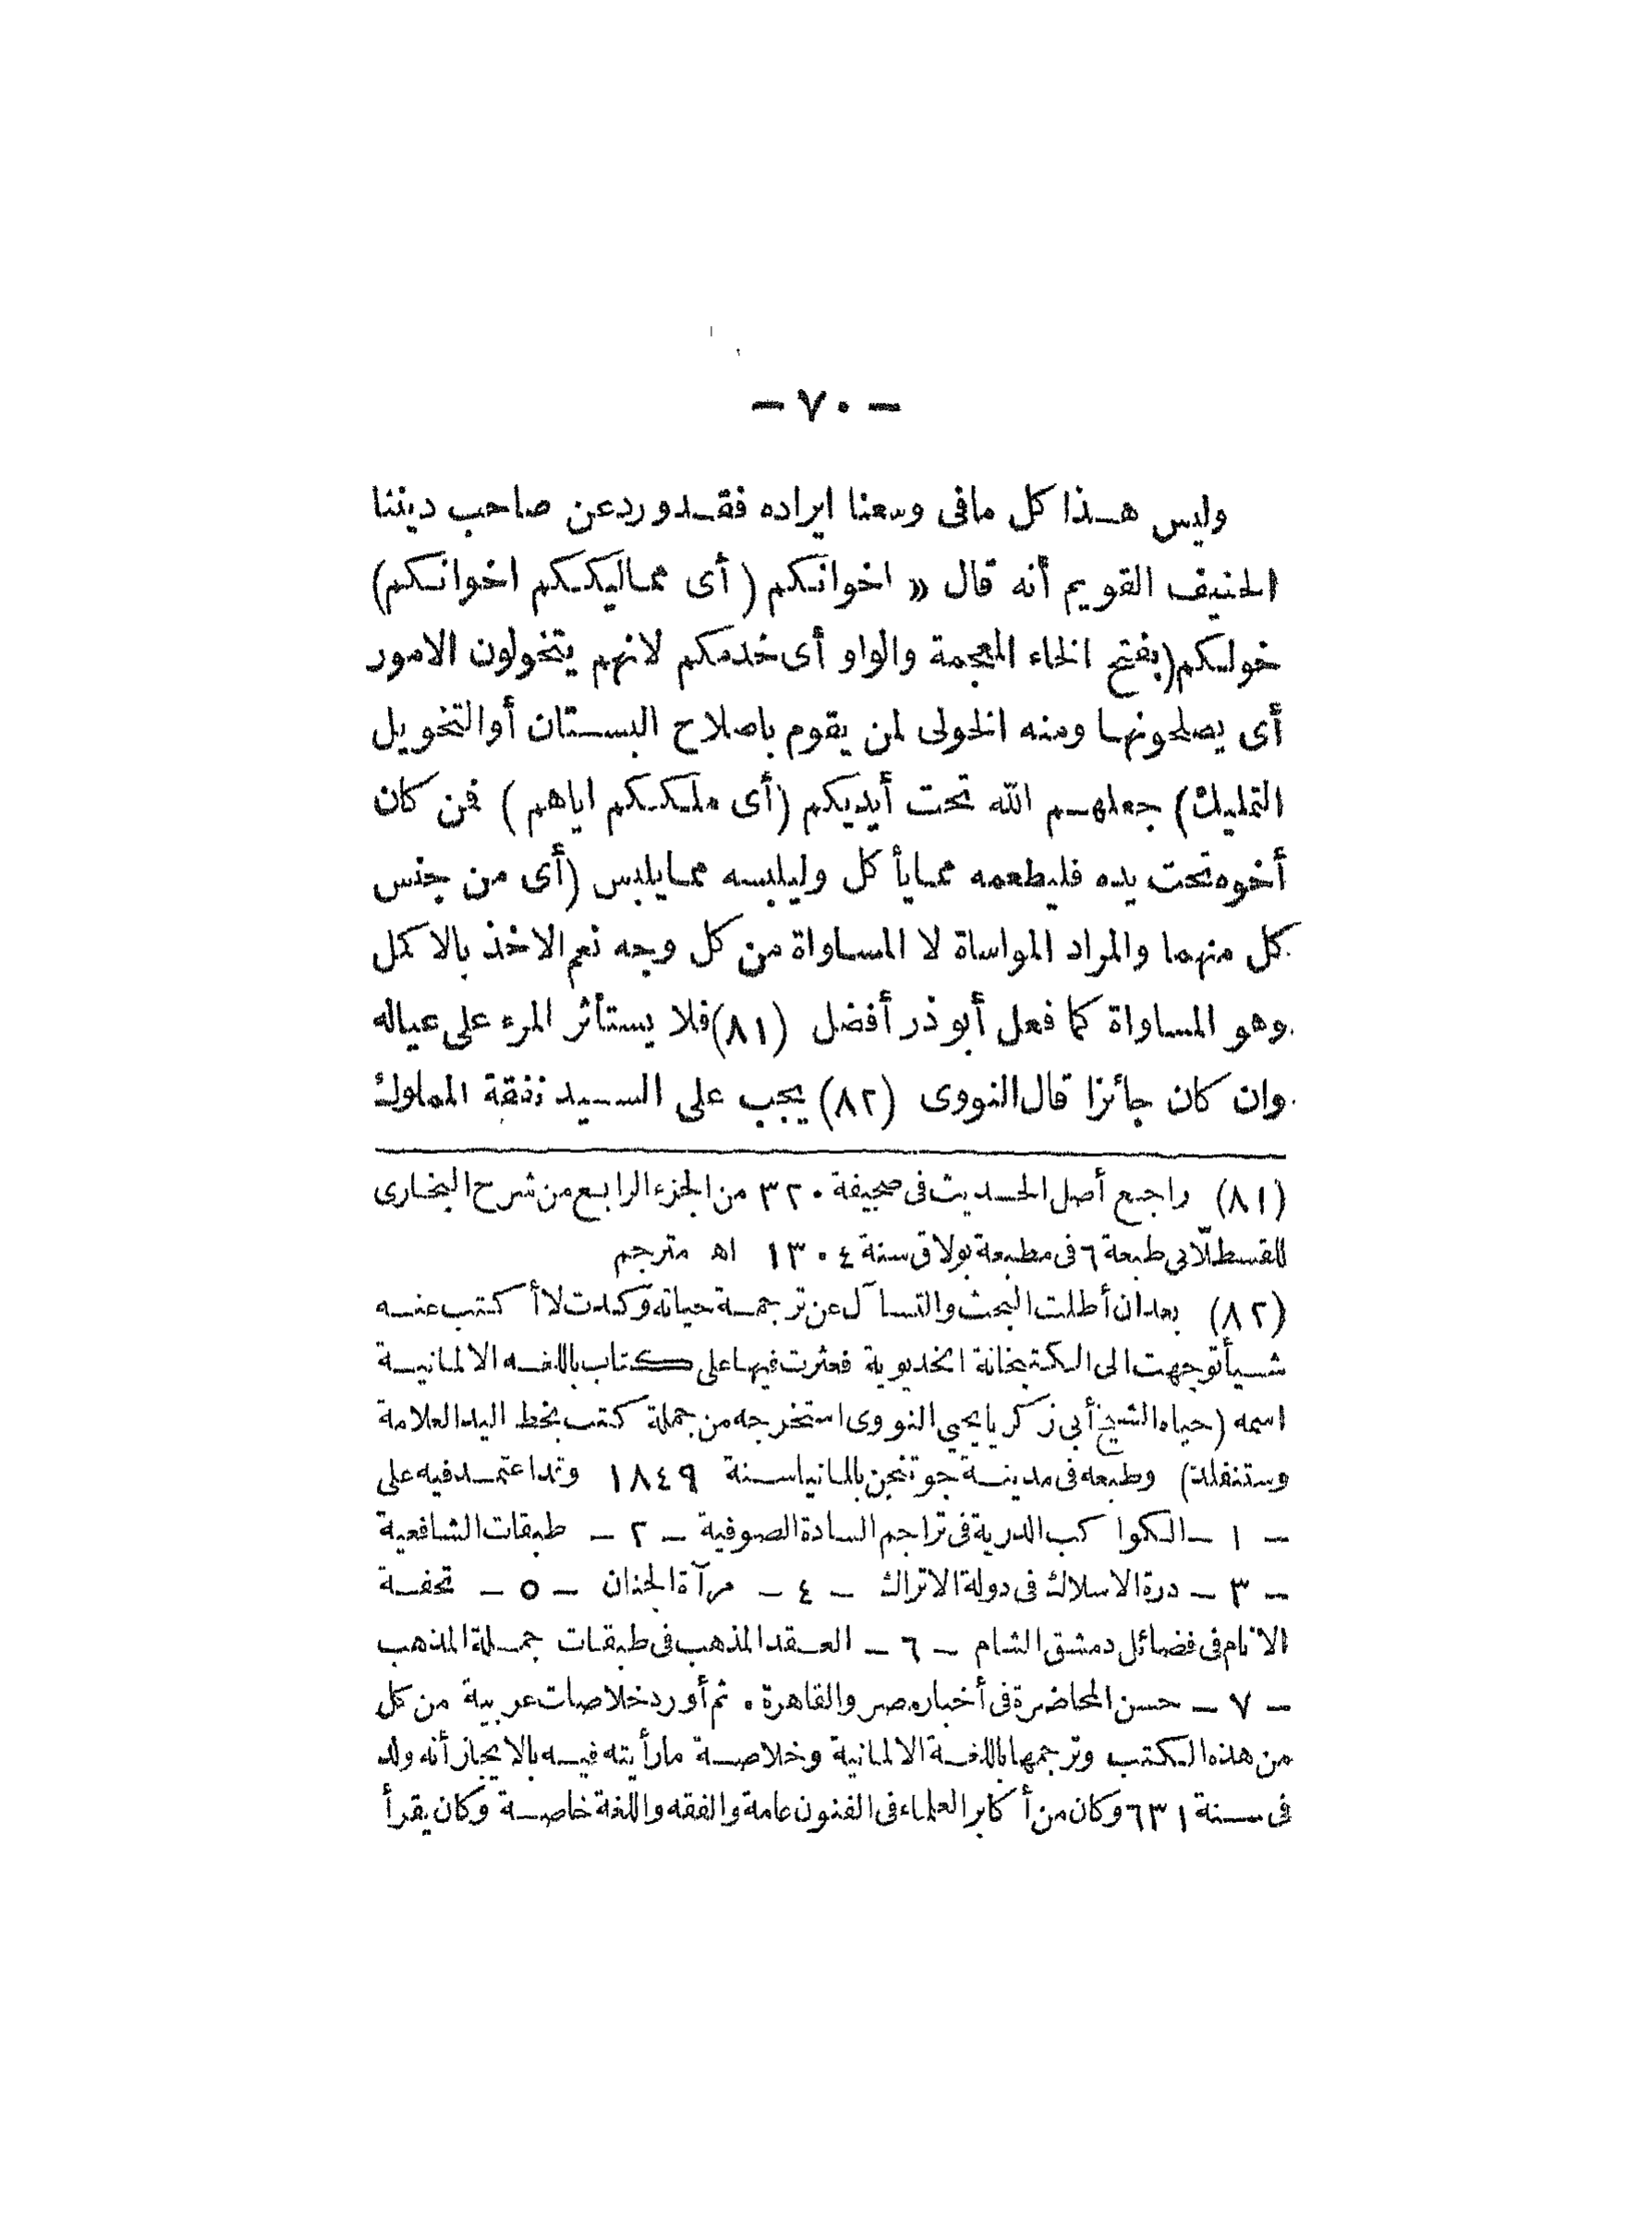 — ٧٠ —
وليس هذا كل مافى وسعنا ايراده فقد ورد عن صاحب ديننا
الحنيف القويم أنه قال « اخوانكم ( أى مماليككم اخوانكم )
خولكم (بفتح الخاء المعجمة والواو أى خدمكم لانهم يتخولون الامور
أى يصلحونها ومنه الخولى لمن يقوم باصلاح البستان أو التخويل
التمليك) جعلهم الله تحت أيديكم (أى ملككم اياهم ) فمن كان
أخوه تحت يده فليطعمه ممايأ كل وليلبسه ممايلبس (أى من جنس
كل منهما والمراد المواساة لا المساواة من كل وجه نعم الاخذ بالا كمل
وهو المساواة كما فعل أبو ذر أفضل (٨١) فلا يستأثر المرء على عياله
وان كان جائزا قال النووى (٨٢) يجب على السيد نفقة المملوك
(٨١) راجع أصل الحديث فى صحيفة ٣٢٠ من الجزء الرابع من شرح البخارى
للقسطلّانى طبعة ٦ فى مطبعة بولاق سنة ١٣٠٤ اه مترجم
(٨٢) بعد ان أطلت البحث والتسآل عن ترجمة حياته وكدت لا أ كتب عنه
شيأ توجهت الى الكتبخانة الخديوية فعثرت فيها على كتاب باللغه الالمانية
اسمه (حياه الشيخ أبى زكريا يحيى النووى استخرجه من جملة كتب بخط اليد العلامة
وستنفلد) وطبعه فى مدينة جوتنجن بالمانيا سنة ١٨٤٩ وقد اعتمد فيه على
— ١ — الكوا كب الدرية فى تراجم السادة الصوفية — ٢ — طبقات الشافعية
— ٣ — درة الاسلاك فى دولة الاتراك — ٤ — مرآة الجنان — ٥ — تحفة
الانام فى فضائل دمشق الشام — ٦ — العقد المذهب فى طبقات جملة المذهب
— ٧ — حسن المحاضرة فى أخبار مصر والقاهرة . ثم أورد خلاصات عربية من كل
من هذه الكتب وترجمها باللغة الالمانية وخلاصة ما رأيته فيه بالايجاز أنه ولد
فى سنة ٦٣١ وكان من أ كابر العلماء فى الفنون عامة والفقه واللغة خاصة وكان يقرأ